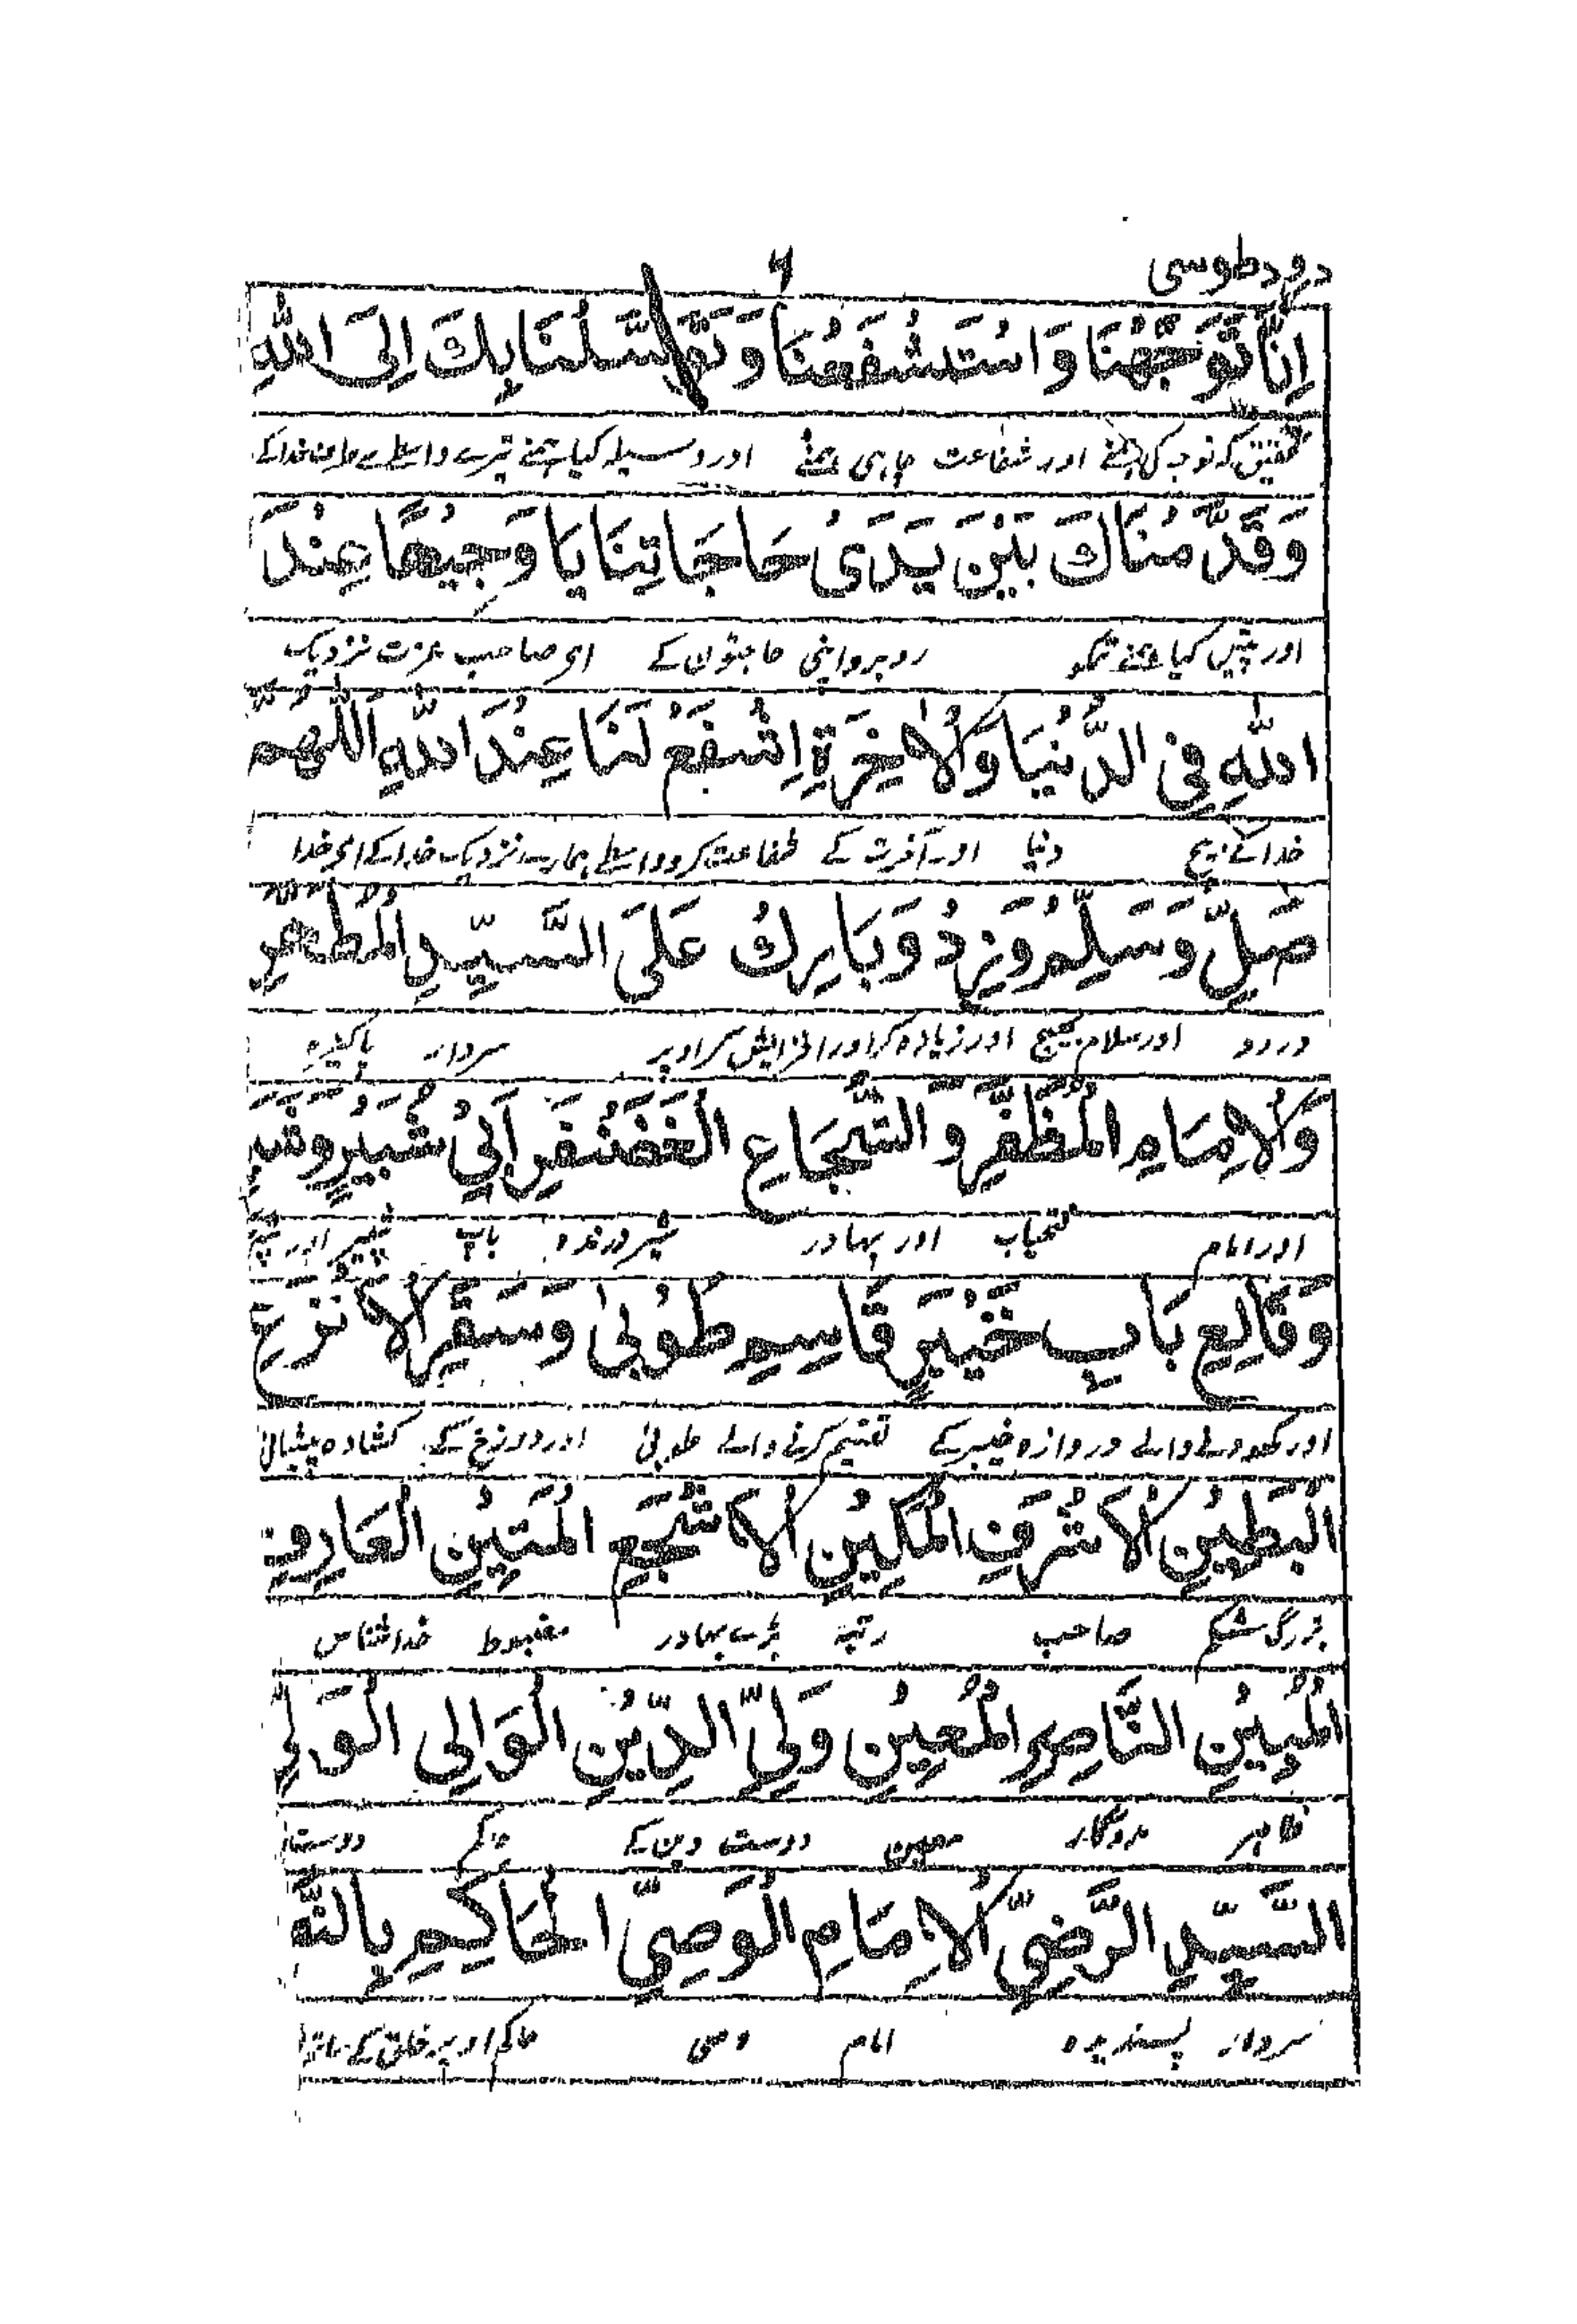 درود طوسی
٦
اِنَّا تَوَجَّهْنَا وَ اسْتَشْفَعْنَا وَ تَوَسَّلْنَا بِكَ اِلَى اللّٰهِ
تحقیق کہ توجہ کی ہمنے اور شفاعت چاہی ہمنے اور وسیلہ کیا ہمنے تیرے واسطے سے طرف خدا کے
وَ قَدَّمْنَاكَ بَيْنَ يَدَىْ حَاجَاتِنَا يَا وَجِيْهًا عِنْدَ
اور پیش کیا ہمنے تمکو روبرو اپنی حاجتوں کے ای صاحب عزت نزدیک
اللّٰهِ فِى الدُّنْيَا وَ الْاٰخِرَةِ اِشْفَعْ لَنَا عِنْدَ اللّٰهِ اَللّٰهُمَّ
خدا کے بیچ دنیا اور آخرت کے شفاعت کرو واسطے ہمارے نزدیک خدا کے ای خدا
صَلِّ وَ سَلِّمْ وَ زِدْ وَ بَارِكْ عَلَى السَّيِّدِ الْمُطَهَّرِ
درود اور سلام بھیج اور زیادہ کر اور افزایش کر اوپر سردار پاکیزہ
وَ الْاِمَامِ الْمُظَفَّرِ وَ الشُّجَاعِ الْغَضَنْفَرِ اَبِىْ شُبَيْرٍ وَ شَبَّرَ
اور امام فتحیاب اور بہادر شیر درندہ باپ شبیر اور شبر
وَ قَالِعِ بَابِ خَيْبَرٍ قَاسِمِ طُوْبٰى وَ سَقَرِ الْاَنْزَعِ
اور کھودنے والے دروازہ خیبر کے تقسیم کرنے والے طوبیٰ اور دوزخ کے کشادہ پیشانی
الْبَطِيْنِ الْاَشْرَفِ الْمَكِيْنِ الْاَشْجَعِ الْمَتِيْنِ الْعَارِفِ
بزرگ شکم صاحب رتبہ بڑے بہادر مضبوط خدا شناس
الْمُبِيْنِ النَّاصِرِ الْمُعِيْنِ وَلِىِّ الدِّيْنِ الْوَالِى الْوَلِى
ظاہر مددگار معین دوست دین کے حاکم دوست
السَّيِّدِ الرَّضِىِّ الْاِمَامِ الْوَصِىِّ الْحَاكِمِ بِالنَّ
سردار پسندیدہ امام وصی حاکم اوپر خلق کے ساتھ